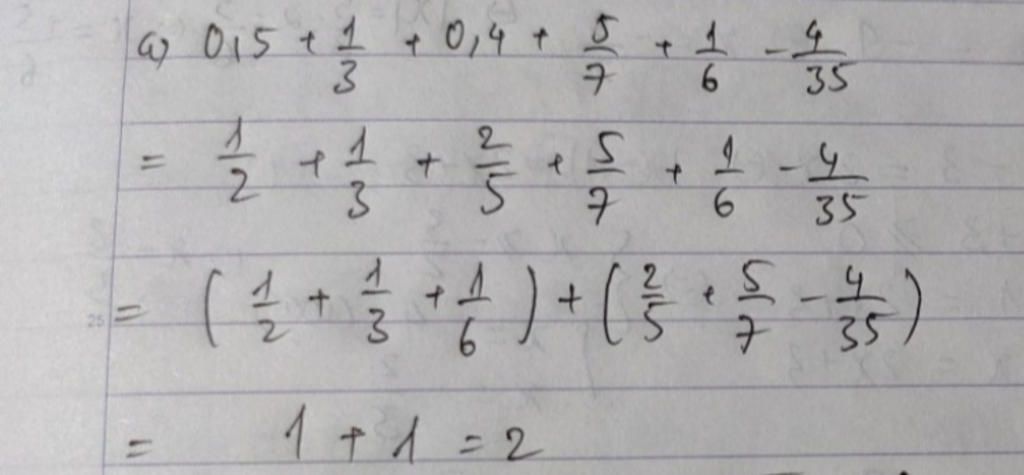 a) 0,5 + 1/3 + 0,4 + 5/7 + 1/6 - 4/35
= 1/2 + 1/3 + 2/5 + 5/7 + 1/6 - 4/35
25 = (1/2 + 1/3 + 1/6) + (2/5 + 5/7 - 4/35)
= 1 + 1 = 2